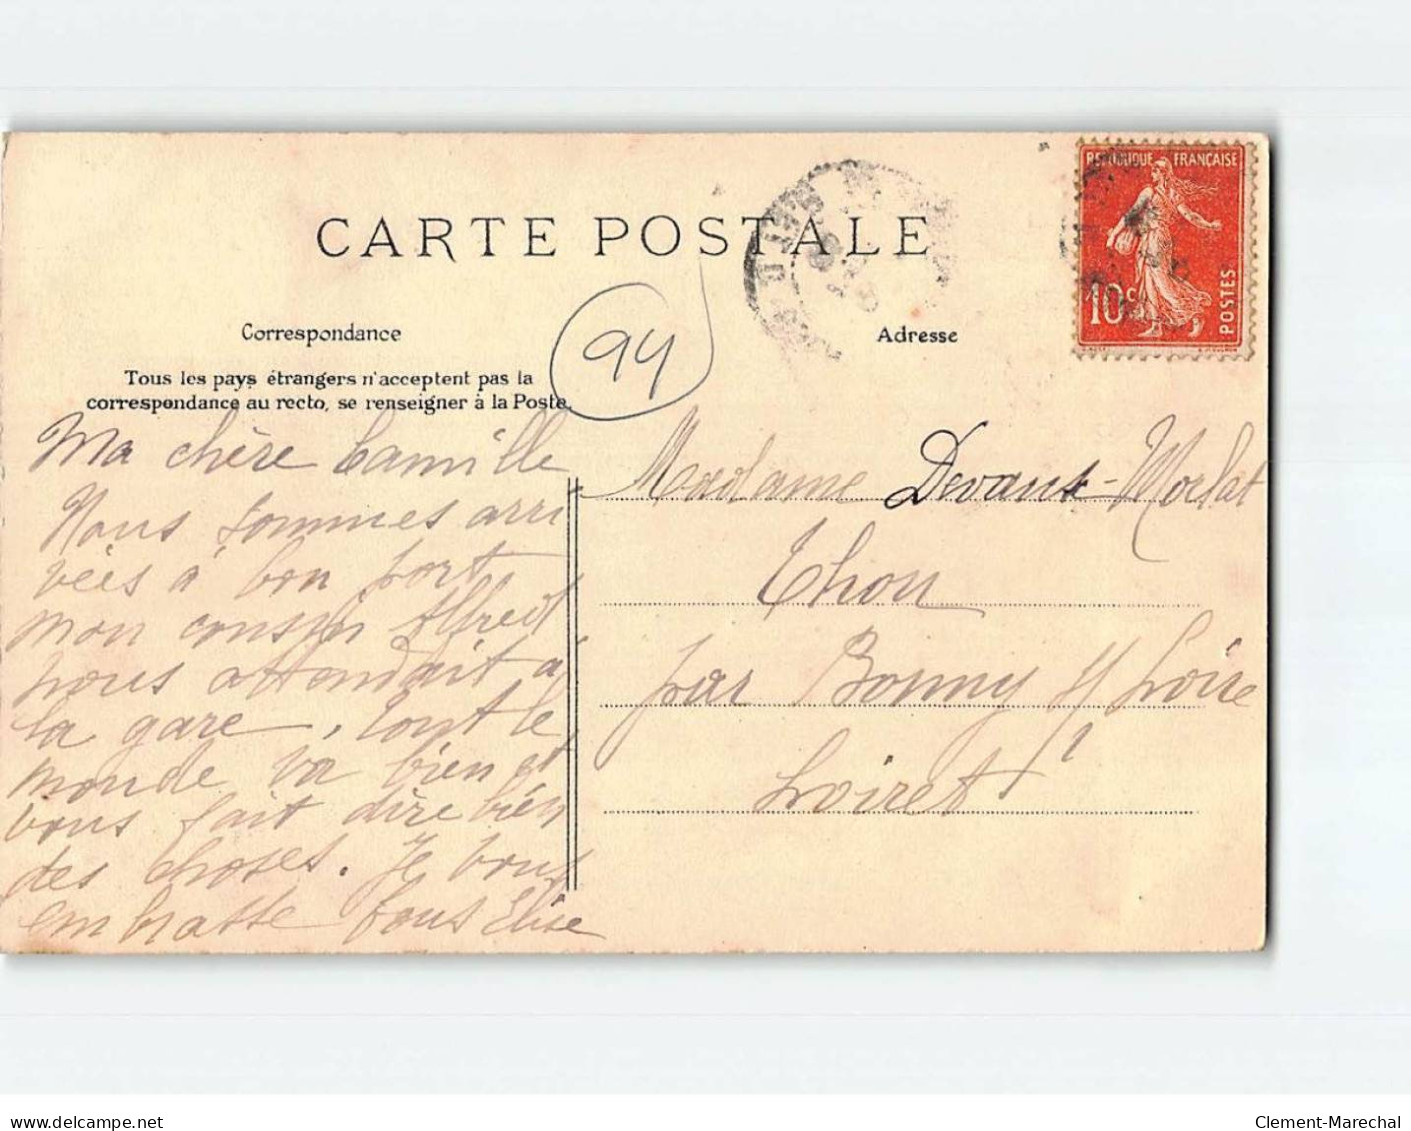 CARTE POSTALE
REPUBLIQUE FRANÇAISE
10 c
POSTES
Correspondance
Adresse
94
Tous les pays étrangers n'acceptent pas la
correspondance au recto, se renseigner à la Poste.
Ma chère Camille
Nous sommes arri
vées à bon port,
mon cousin Alfred
nous attendait à
la gare, tout le
monde va bien et
vous fait dire bien
des choses. Je vous
embrasse tous Elise
Madame Devaux-Morlat
Thou
par Bonny s/ Loire
Loiret
delcampe.net
Clement-Marechal